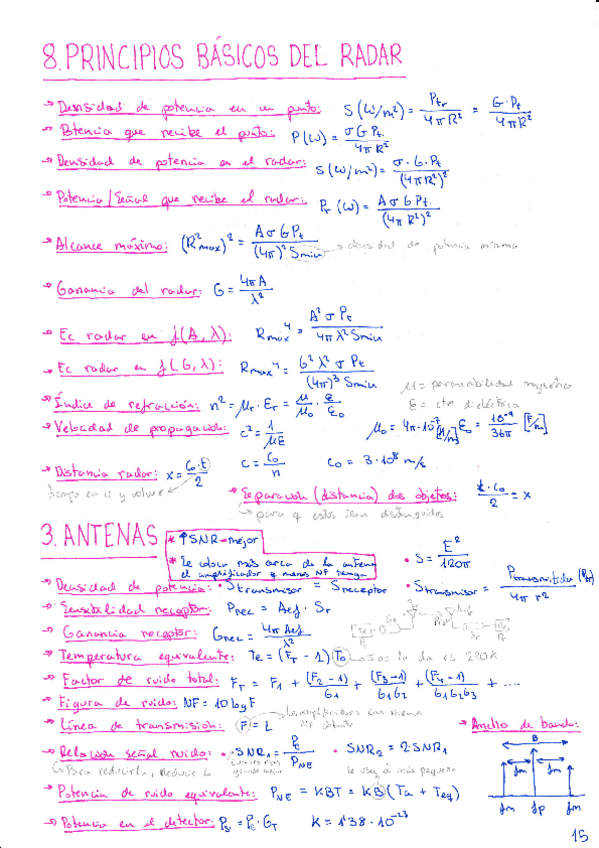 8. PRINCIPIOS BÁSICOS DEL RADAR
→ Densidad de potencia en un punto: S (W/m²) = Ptr / 4πR² = G·Pt / 4πR²
→ Potencia que recibe el punto: P (W) = σ G Pt / 4πR²
→ Densidad de potencia en el radar: S (W/m²) = σ·G·Pt / (4πR²)²
→ Potencia/Señal que recibe el radar: Pr (W) = A σ G Pt / (4πR²)²
→ Alcance máximo: (R²max)² = A σ G Pt / (4π)² Smin → densidad de potencia mínima
→ Ganancia del radar: G = 4πA / λ²
→ Ec radar en f(A, λ): Rmax⁴ = A² σ Pt / 4πλ² Smin
→ Ec radar en f(G, λ): Rmax⁴ = G² λ² σ Pt / (4π)³ Smin
μ = permeabilidad magnética
→ Índice de refracción: n² = μr · εr = μ/μ0 · ε/ε0
ε = cte dieléctrica
→ Velocidad de propagación: c² = 1/με
μ0 = 4π·10⁻⁷ [H/m] ε0 = 10⁻⁹/36π [F/m]
→ Distancia radar: x = c0·t / 2
c = c0/n c0 = 3·10⁸ m/s
tiempo en ir y volver
→ Separación (distancia) dos objetos: t·c0 / 2 = x
→ para q estos sean distinguidos
3. ANTENAS
* ↑SNR → mejor
* Se coloca más cerca de la antena
el amplificador q menos NF tenga
• S = E² / 120π
→ Densidad de potencia: • Stransmisor = Sreceptor • Stransmisor = Ptransmitida / 4πr²
→ Sensibilidad receptor: Prec = Aef · Sr
→ Ganancia receptor: Grec = 4π Aef / λ²
→ Temperatura equivalente: Te = (FT − 1) T0
→ Factor de ruido total: FT = F1 + (F2 − 1)/G1 + (F3 − 1)/G1G2 + (F4 − 1)/G1G2G3 + ....
→ Figura de ruido: NF = 10 log F
→ Línea de transmisión: F = L
→ Ancho de banda:
→ Relación señal ruido: • SNR1 = PR / PNE • SNR2 = 2·SNR1
B
fm fm
→ Potencia de ruido equivalente: PNE = KBT = KB (Ta + Teq)
fm fp fm
→ Potencia en el detector: K = 1'38·10⁻²³
15